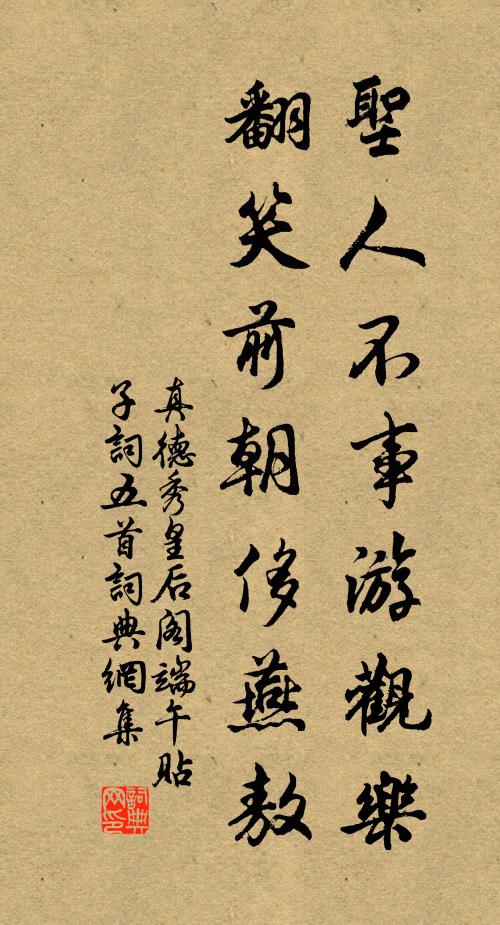 聖人不事游觀樂
翻笑前朝侈燕敖
真德秀皇后阁端午貼
子詞五首詞典網集
詞典网印